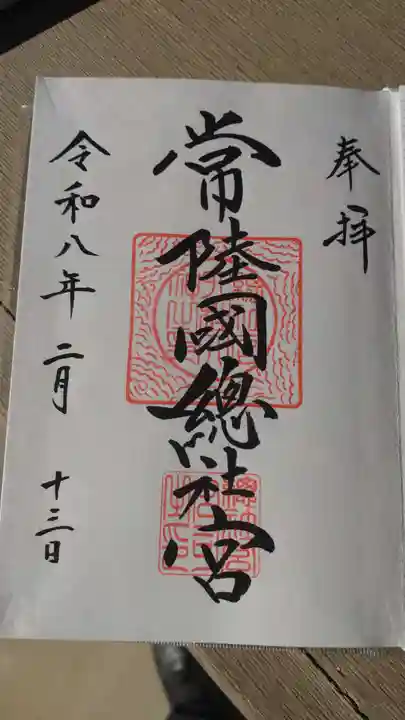 奉拝
常陸國總社宮
令和八年 二月 十三日